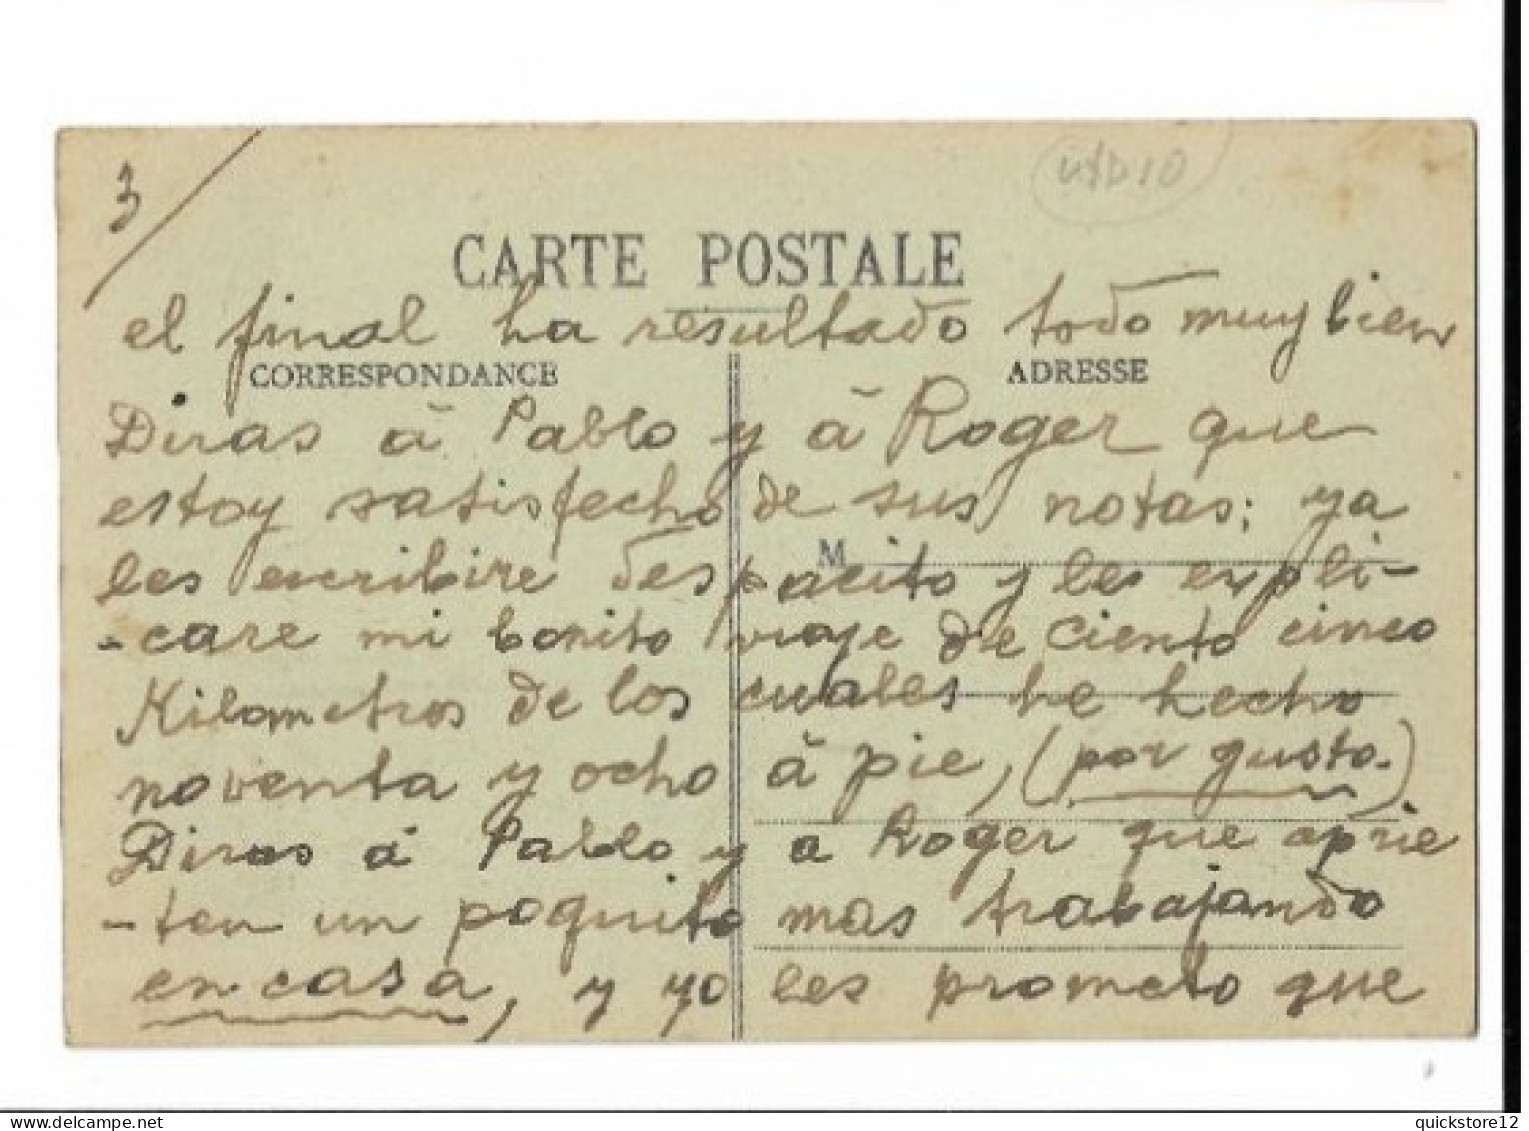 3
UAD10
CARTE POSTALE
el final ha resultado todo muy bien
CORRESPONDANCE
ADRESSE
Diras á Pablo y á Roger que
estoy satisfecho de sus notas; ya
M
les escribire despacito y les expli-
-care mi bonito viaje de ciento cinco
Kilometros de los cuales he hecho
noventa y ocho á pie, (por gusto.)
Diras á Pablo y a Roger que aprie
-ten un poquito mas trabajando
en casa, y yo les prometo que
quickstore12